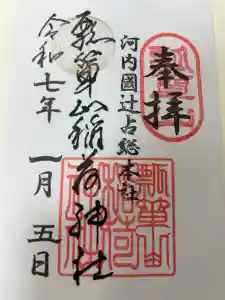 奉拝
河内國辻占総本社
瓢箪山稲荷神社
令和七年一月五日
瓢箪山稲荷神社